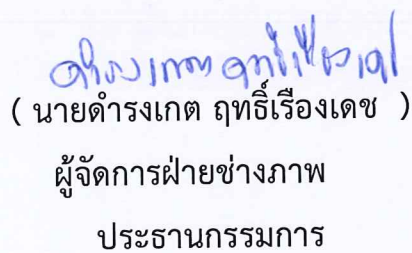 ดำรงเกต ฤทธิ์เรืองเดช
( นายดำรงเกต ฤทธิ์เรืองเดช )
ผู้จัดการฝ่ายช่างภาพ
ประธานกรรมการ